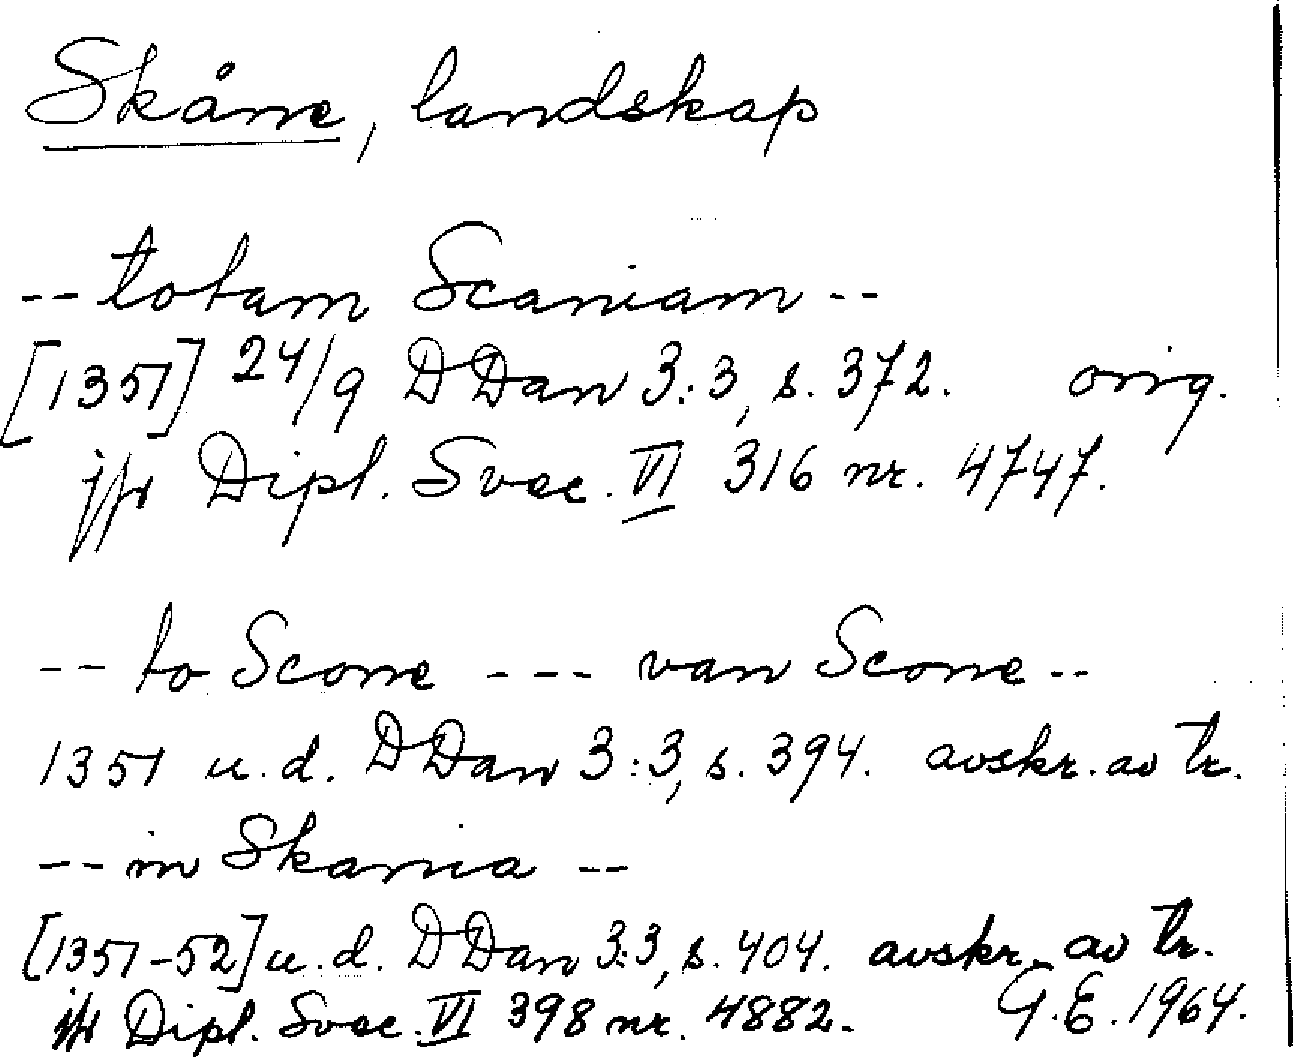 Skåne, landskap
-- totam Scaniam --
[1351] 24/9 DDan 3:3, s. 372. orig.
jfr Dipl. Svec. VI 316 nr. 4747.
-- to Scone --- van Scone --
1351 u.d. DDan 3:3, s. 394. avskr. av tr.
-- in Skania --
[1351-52] u.d. DDan 3:3, s. 404. avskr. av tr.
jfr Dipl. Svec. VI 398 nr. 4882. G.E. 1964.